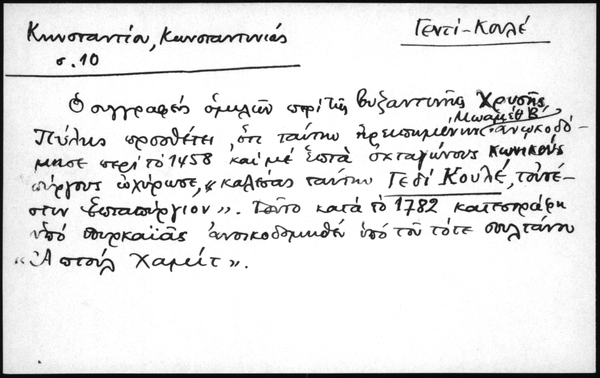 Κωνσταντίου, Κωνσταντινιάς
σ. 10
Γεντί-Κουλέ
Ὁ συγγραφεύς ὁμιλῶν περί τῆς βυζαντινῆς Χρυσῆς
Μωάμεθ Β΄
Πύλης προσθέτει, ὅτι ταύτην ἠρειπωμένην ἀνῳκοδό-
μησε περί τό 1458 καί μέ ἑπτά ὀκταγώνους κωνικούς
πύργους ὠχύρωσε, «καλέσας ταύτην Γεδί Κουλέ, τοὐτέ-
στιν Ἑπταπύργιον». Τοῦτο κατά τό 1782 κατεστράφη
ὑπό πυρκαϊᾶς ἀνοικοδομηθέν ὑπό τοῦ τότε σουλτάνου
«Ἀπτούλ Χαμίτ».